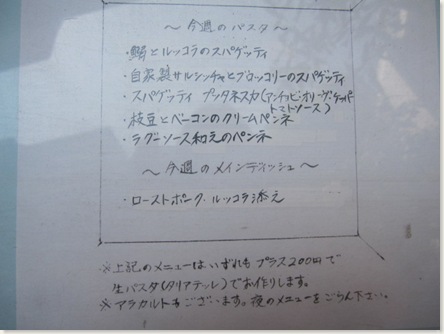 〜今週のパスタ〜
・鰯とルッコラのスパゲッティ
・自家製サルシッチャとブロッコリーのスパゲッティ
・スパゲッティ プッタネスカ(アンチョビ・オリーブ・ケッパー
トマトソース)
・枝豆とベーコンのクリームペンネ
・ラグーソース和えのペンネ
〜今週のメインディッシュ〜
・ローストポーク ルッコラ添え
※上記のメニューはいずれもプラス200円で
生パスタ(タリアテッレ)でお作りします。
※アラカルトもございます。夜のメニューをごらん下さい。